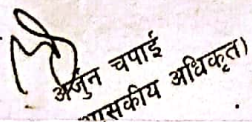 अर्जुन चपाई
ासकीय अधिकृत)